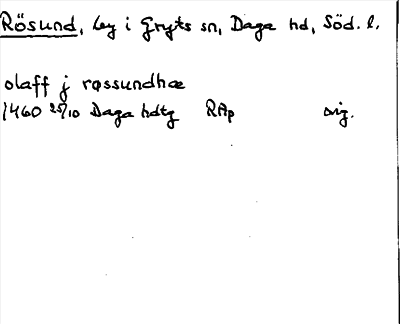 Rösund, by i Gryts sn, Daga hd, Söd. l.
olaff j røssundhæ
1460 25/10 Daga hdtg RAp orig.